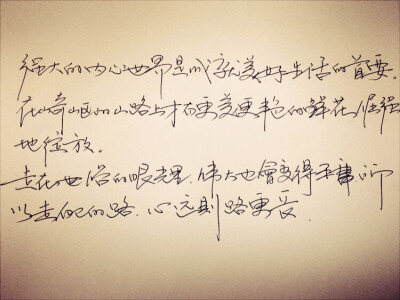 强大的内心世界是成就美好生活的首要。
在崎岖的山路上才有更美更艳的鲜花，倔强
地绽放。
走在世俗的眼光里，伟大也会变得平庸，所
以走自己的路，心远则路更长。